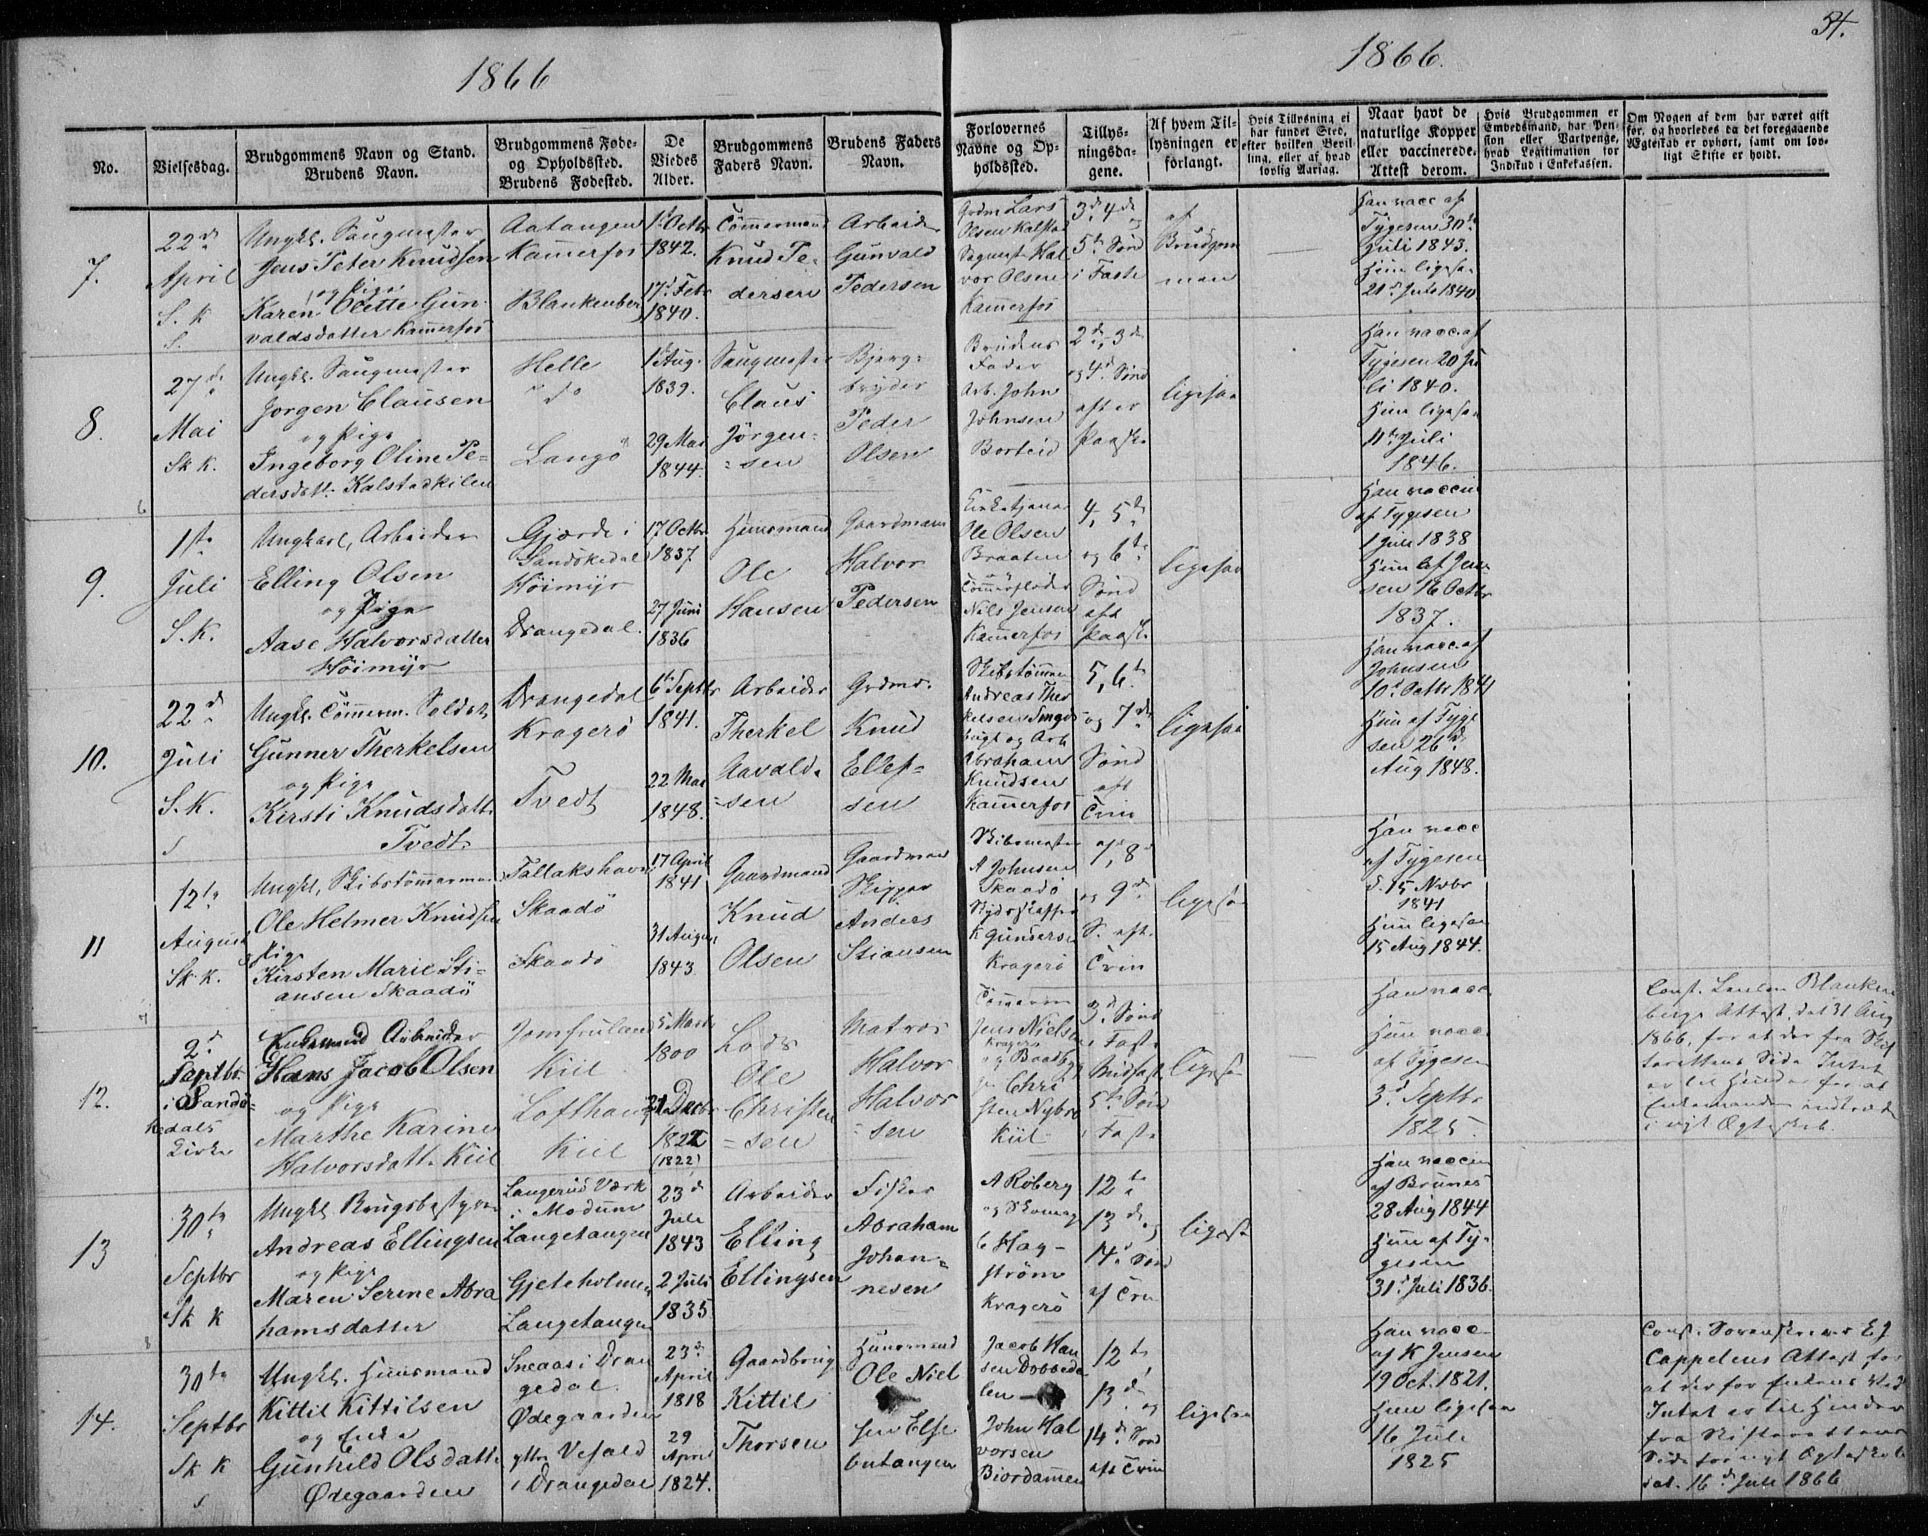 1866
1866.
54.
No.
Vielsesdag.
Brudgommens Navn og Stand.
Brudens Navn.
Brudgommens Føde-
og Opholdssted.
Brudens Fødested.
De
Viedes
Alder.
Brudgommens
Faders Navn.
Brudens Faders
Navn.
Forlovernes
Navne og Op-
holdssted.
Tillys-
ningsda-
gene.
Af hvem Til-
lysningen er
forlangt.
Hvis Tillysning ei
har fundet Sted,
efter hvilken Bevil-
ling, eller af hvad
lovlig Aarsag.
Naar havt de
naturlige Kopper
eller vaccinerede.
Attest derom.
Hvis Brudgommen er
Embedsmand, har Pen-
sion eller Vartpenge,
hvad Legitimation for
Indskud i Enkekassen.
Om Nogen af dem har været gift
før, og hvorledes da det foregaaende
Ægteskab er ophørt, samt om lov-
ligt Skifte er holdt.
7.
22d
April
S. K
S.
Ungk. Saugmester
Jens Peter Knudsen
og Pige
Karen Olette Gun-
valdsdatter Kammerfos
Aatangen
Kammerfos
Blankenber
1 Octbr
1842.
17d Febr
1840.
Tømmermand
Knud Pe-
dersen
Arbeider
Gunvald
Pedersen
Grdm Lars
Olsen Kalstad
Sagmest. Hal
vor Olsen
Kammerfos
3d 4de
og
5te Sønd
i Faste
af
Brudgom
men
Han vacc af
Tygesen 30te
Juli 1843.
Hun ligesaa
21d Juli 1840
8.
27de
Mai
Sk K.
Ungk. Saugmester
Jørgen Clausen
og Pige
Ingeborg Oline Pe-
dersdatt. Kalstadkilen
Helle
do
Langø
1 Aug.
1839.
29 Mai
1844.
Saugmester
Claus
Jørgen-
sen
Bjerg-
bryder
Peder
Olsen
Brudens
Fader
Arb. John
Johnsen
Borteid
2de, 3de
og 4d Sønd
efter
Paaske
ligesaa
Han vacc. af
Tygesen 20 Ju
li 1840.
Hun ligesaa
11te Juli
1846.
9.
1ste
Juli
S. K.
Ungkarl, Arbeider
Elling Olsen
og Pige
Aase Halvorsdatter
Høimyr
Gjærde i
Sandøkedal
Høimyr
Drangedal.
17 Octbr
1837.
27 Juni
1836
Huusmand
Ole
Hansen
Gaardmand
Halvor
Pedersen
Kirketjener
Ole Olsen
Braaten
og
Tømmerfløder
Nils Jensen
Kammerfos
4, 5te
og 6te
Sønd
eft
Paask.
ligesaa
Han vaccin
af Tygesen
1 Juli 1838
Hun af Jen
sen 16 Octbr
1837.
10.
22d
Juli
S. K.
Ungk. Tømmerm. Soldat
Gunner Therkelsen
og Pige
Kirsti Knudsdatt.
Tvedt
Drangedal
Kragerø
Tvedt
6te Septbr
1841.
22 Mai
1848.
Arbeider
Therkel
Aavald-
sen
Grdmd.
Knud
Ellef-
sen
Skibstømmer
Andreas Ther
kelsen Smeds
bugt og Arb
Abraham
Knudsen
Kammerfos
5, 6te
og 7de
Sønd
eft
Trin
ligesaa
Han vacc. af
Johnsen
10d Octbr 1841
Hun af Tyge
sen 26de
Aug 1848.
11
12te
August
Sk K.
Ungk., Skibstømmermand
Ole Helmer Knudsen
og Pige
Kirsten Marie Sti-
ansen Skaadø
Tallakshavn
Skaadø
Skaadø
17 April
1841
31 August
1843
Gaardmand
Knud
Olsen
Gaardmand
Skipper
Anders
Stiansen
Skibsmester
A Johnsen
Skaadø
K Gundersen
Kragerø
7, 8
og 9d
S. eft.
Trin
ligesaa
Han vacc
af Tygesen
d. 15 Novbr
1841
Hun ligesaa
15 Aug 1844.
12.
2d
Septbr.
i Sandø-
kedals
Kirke
Enkemand Arbeider
Hans Jacob Olsen
og Pige
Marthe Karine
Halvorsdatt. Kiil
Jomfruland
Kiil
Lofthaug
Kiil
5 Marts
1800
21 Decbr
1822
(1822)
Lods
Ole
Christen
sen
Matros
Halvor
Halvor
sen
Tømmerm
Jens Nielsen
Kragerø
og Baadbyg
ger Chri
sten Nybro
Kiil
3d Sønd
i Faste
Midfaste
5te Sønd
i Faste
ligesaa
Han vacc.
Hun vacc.
af Tygesen
3d Septbr
1825.
Const. Lensm Blanken
bergs Attest, dat 31 Aug
1866, for at der fra Skif
terettens Side Intet
er til Hinder for at
Enkemanden indtræder
i nyt Ægteskab.
13
30te
Septbr
Sk K
Ungk. Brugsbestyrer
Andreas Ellingsen
og Pige
Maren Serine Abra
hamsdatter
Langerud Værk
i Modum
Langetangen
Gjeteholmen
Langetangen
23d
Juli
1843
2 Juli
1835
Arbeider
Elling
Ellingsen
Fisker
Abraham
Johan-
nesen
A Roberg
og Skomag
C Hag-
strøm
Kragerø
12te
13de og
14d Sønd
af Trin
ligesaa
Han vaccin
af Brunes
28 Aug 1844
Hun af Ty-
gesen
31d Juli 1836.
14.
30te
Septbr
Sk K
S
Ungk. Huusmand
Kittil Kittilsen
og Enke
Gunhild Olsdatt.
Ødegaarden
Sneaas i Dran
gedal.
Ødegaarden
yttre Vefald
i Drangedal
23d
April
1818
29
April
1824.
Gaardbrug
Kittil
Thorsen
Huusmand
Ole Niel
sen Else
butangen
Jacob Han
sen Dobbeda
len
John Hal
vorsen
Biordammen
12te,
13de og
14de Sønd
eft Trin
ligesaa
Han vacc
af K Jensen
19 Oct. 1821.
Hun ligesaa
16 Juli
1825
Const. Sorenskriver Ef
Cappelens Attest for
at der for Enkens Ved
Intet er til Hinder
fra Skifterettens
Side for nyt Ægteskab
dat. 16d Juli 1866